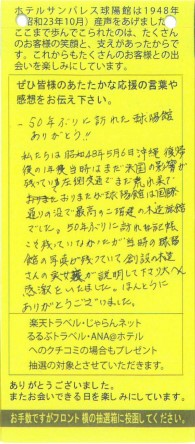 ホテルサンパレス球陽館は1948年
(昭和23年10月) 産声をあげました
ここまで歩んでこられたのは、たくさん
のお客様の笑顔と、支えがあったからで
す。これからもたくさんのお客様との出
会いを楽しみにしています。
ぜひ皆様のあたたかな応援の言葉や
感想をお伝え下さい。
50年ぶりに訪れた球陽館
ありがとう!!
私たちは昭和48年5月6日沖縄復帰
後の1年後当時はまだ米国の影響が
残っている左側交通でまだ
球陽館は国際
通りの沿で最高の二階建の木造旅館
でした。50年ぶりに訪れ
こそ残っていなかったが当時の球陽
館の写真が残っていて創設の
さんの実女が説明して下さり大へん
感激をいたしました。ほんとうに
ありがとうございました。
楽天トラベル・じゃらんネット
るるぶトラベル・ANA@ホテル
へのクチコミの場合もプレゼント
抽選の対象とさせていただきます。
ありがとうございました。
またお会いできる日を楽しみにしています。
お手数ですがフロント横の抽選箱に投函してください。